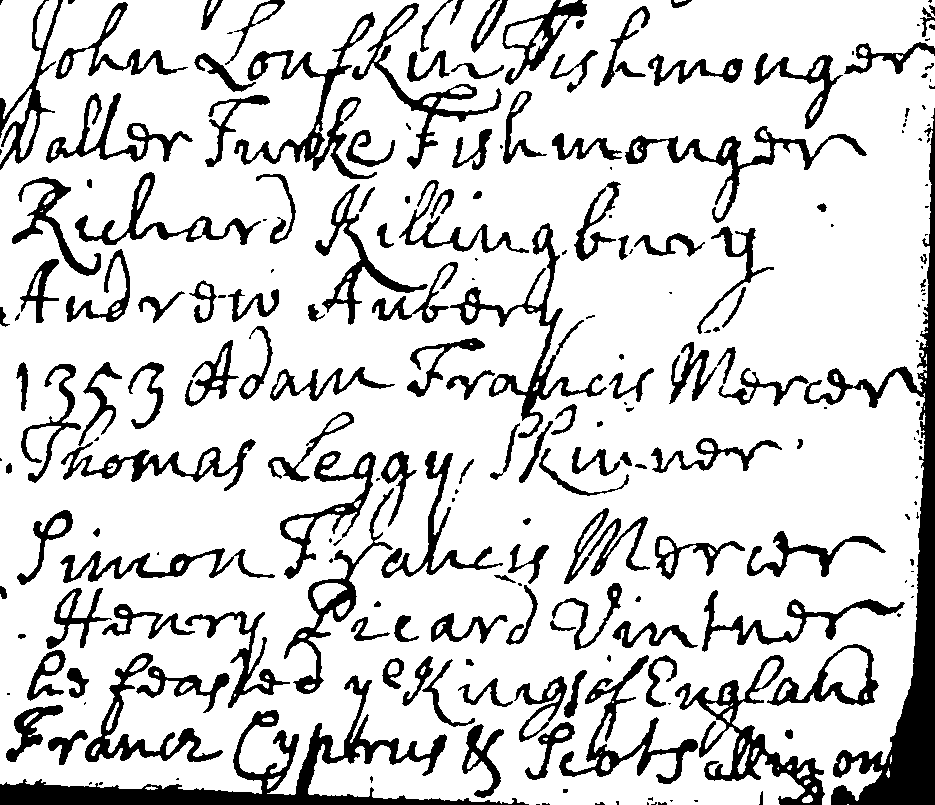 John Loufkin Fishmonger
Walter Turke Fishmonger
Richard Killingbury
Andrew Aubery
1353 Adam Francis Mercer
Thomas Leggy Skinner
Simon Francis Mercer
Henry Picard Vintner
he feasted ye Kings of England
France Cyprus & Scots all in one